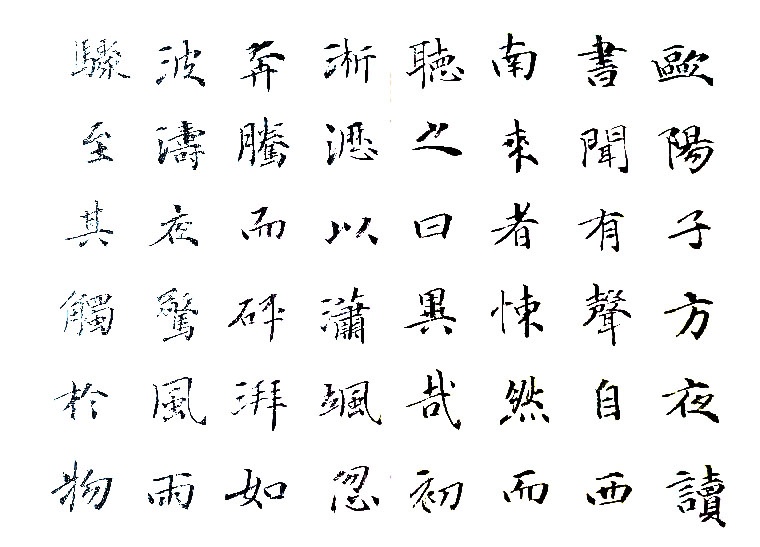 歐陽子方夜讀
書聞有聲自西
南來者悚然而
聽之曰異哉初
淅瀝以瀟颯忽
奔騰而砰湃如
波濤夜驚風雨
驟至其觸於物